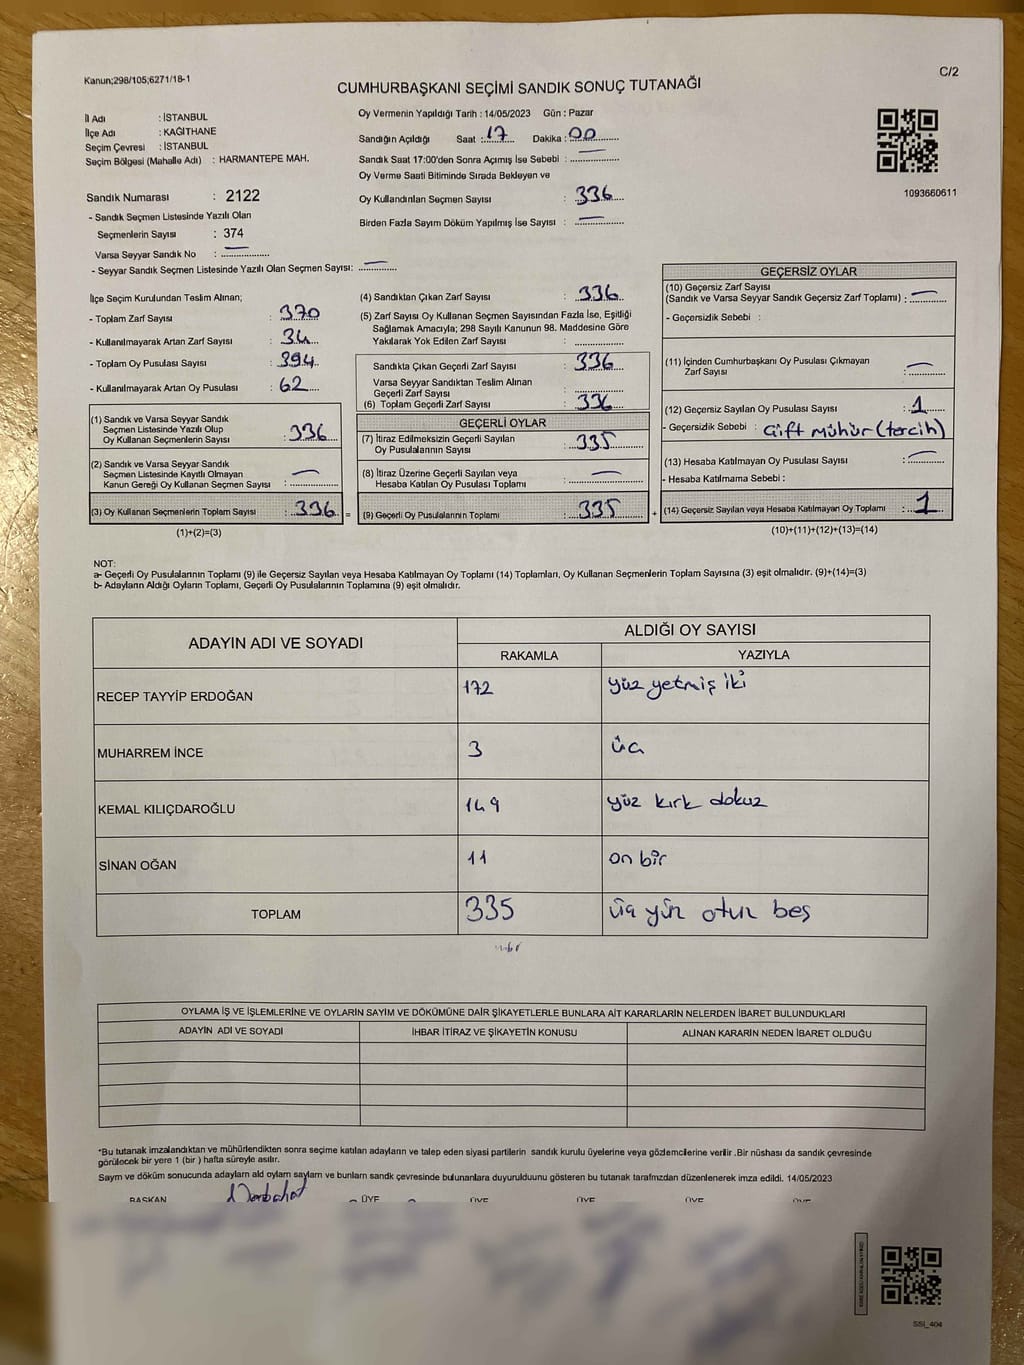 Kanun;298/105;6271/18-1
C/2
CUMHURBAŞKANI SEÇİMİ SANDIK SONUÇ TUTANAĞI
İl Adı : İSTANBUL
İlçe Adı : KAĞITHANE
Seçim Çevresi : İSTANBUL
Seçim Bölgesi (Mahalle Adı) : HARMANTEPE MAH.
Oy Vermenin Yapıldığı Tarih : 14/05/2023 Gün : Pazar
Sandığın Açıldığı Saat : 17 Dakika : 00
Sandık Saat 17:00'den Sonra Açımış İse Sebebi :
Oy Verme Saati Bitiminde Sırada Bekleyen ve
Oy Kullandırılan Seçmen Sayısı : 336
Birden Fazla Sayım Döküm Yapılmış İse Sayısı : —
1093660611
Sandık Numarası : 2122
- Sandık Seçmen Listesinde Yazılı Olan
Seçmenlerin Sayısı : 374
Varsa Seyyar Sandık No : —
- Seyyar Sandık Seçmen Listesinde Yazılı Olan Seçmen Sayısı: —
İlçe Seçim Kurulundan Teslim Alınan;
- Toplam Zarf Sayısı : 370
- Kullanılmayarak Artan Zarf Sayısı : 34
- Toplam Oy Pusulası Sayısı : 394
- Kullanılmayarak Artan Oy Pusulası : 62
(1) Sandık ve Varsa Seyyar Sandık
Seçmen Listesinde Yazılı Olup
Oy Kullanan Seçmenlerin Sayısı : 336
(2) Sandık ve Varsa Seyyar Sandık
Seçmen Listesinde Kayıtlı Olmayan
Kanun Gereği Oy Kullanan Seçmen Sayısı : —
(3) Oy Kullanan Seçmenlerin Toplam Sayısı : 336 =
(1)+(2)=(3)
(4) Sandıktan Çıkan Zarf Sayısı : 336
(5) Zarf Sayısı Oy Kullanan Seçmen Sayısından Fazla İse, Eşitliği
Sağlamak Amacıyla; 298 Sayılı Kanunun 98. Maddesine Göre
Yakılarak Yok Edilen Zarf Sayısı :
Sandıkta Çıkan Geçerli Zarf Sayısı : 336
Varsa Seyyar Sandıktan Teslim Alınan
Geçerli Zarf Sayısı :
(6) Toplam Geçerli Zarf Sayısı : 336
GEÇERLİ OYLAR
(7) İtiraz Edilmeksizin Geçerli Sayılan
Oy Pusulalarının Sayısı : 335
(8) İtiraz Üzerine Geçerli Sayılan veya
Hesaba Katılan Oy Pusulası Toplamı : —
(9) Geçerli Oy Pusulalarının Toplamı : 335 +
GEÇERSİZ OYLAR
(10) Geçersiz Zarf Sayısı
(Sandık ve Varsa Seyyar Sandık Geçersiz Zarf Toplamı) : —
- Geçersizlik Sebebi :
(11) İçinden Cumhurbaşkanı Oy Pusulası Çıkmayan
Zarf Sayısı : —
(12) Geçersiz Sayılan Oy Pusulası Sayısı : 1
- Geçersizlik Sebebi : Çift mühür (tercih)
(13) Hesaba Katılmayan Oy Pusulası Sayısı : —
- Hesaba Katılmama Sebebi :
(14) Geçersiz Sayılan veya Hesaba Katılmayan Oy Toplamı : 1
(10)+(11)+(12)+(13)=(14)
NOT:
a- Geçerli Oy Pusulalarının Toplamı (9) ile Geçersiz Sayılan veya Hesaba Katılmayan Oy Toplamı (14) Toplamları, Oy Kullanan Seçmenlerin Toplam Sayısına (3) eşit olmalıdır. (9)+(14)=(3)
b- Adayların Aldığı Oyların Toplamı, Geçerli Oy Pusulalarının Toplamına (9) eşit olmalıdır.
ADAYIN ADI VE SOYADI ALDIĞI OY SAYISI
RAKAMLA YAZIYLA
RECEP TAYYİP ERDOĞAN 172 yüz yetmiş iki
MUHARREM İNCE 3 üç
KEMAL KILIÇDAROĞLU 149 yüz kırk dokuz
SİNAN OĞAN 11 on bir
TOPLAM 335 üç yüz otuz beş
OYLAMA İŞ VE İŞLEMLERİNE VE OYLARIN SAYIM VE DÖKÜMÜNE DAİR ŞİKAYETLERLE BUNLARA AİT KARARLARIN NELERDEN İBARET BULUNDUKLARI
ADAYIN ADI VE SOYADI İHBAR İTİRAZ VE ŞİKAYETİN KONUSU ALINAN KARARIN NEDEN İBARET OLDUĞU
*Bu tutanak imzalandıktan ve mühürlendikten sonra seçime katılan adayların ve talep eden siyasi partilerin sandık kurulu üyelerine veya gözlemcilerine verilir .Bir nüshası da sandık çevresinde
görülecek bir yere 1 (bir ) hafta süreyle asılır.
Sayım ve döküm sonucunda adayların ald oyların sayların ve bunların sandık çevresinde bulunanlara duyurulduunu gösteren bu tutanak tarafımızdan düzenlenerek imza edildi. 14/05/2023
BAŞKAN ÜYE ÜYE ÜYE ÜYE ÜYE
SSI_404